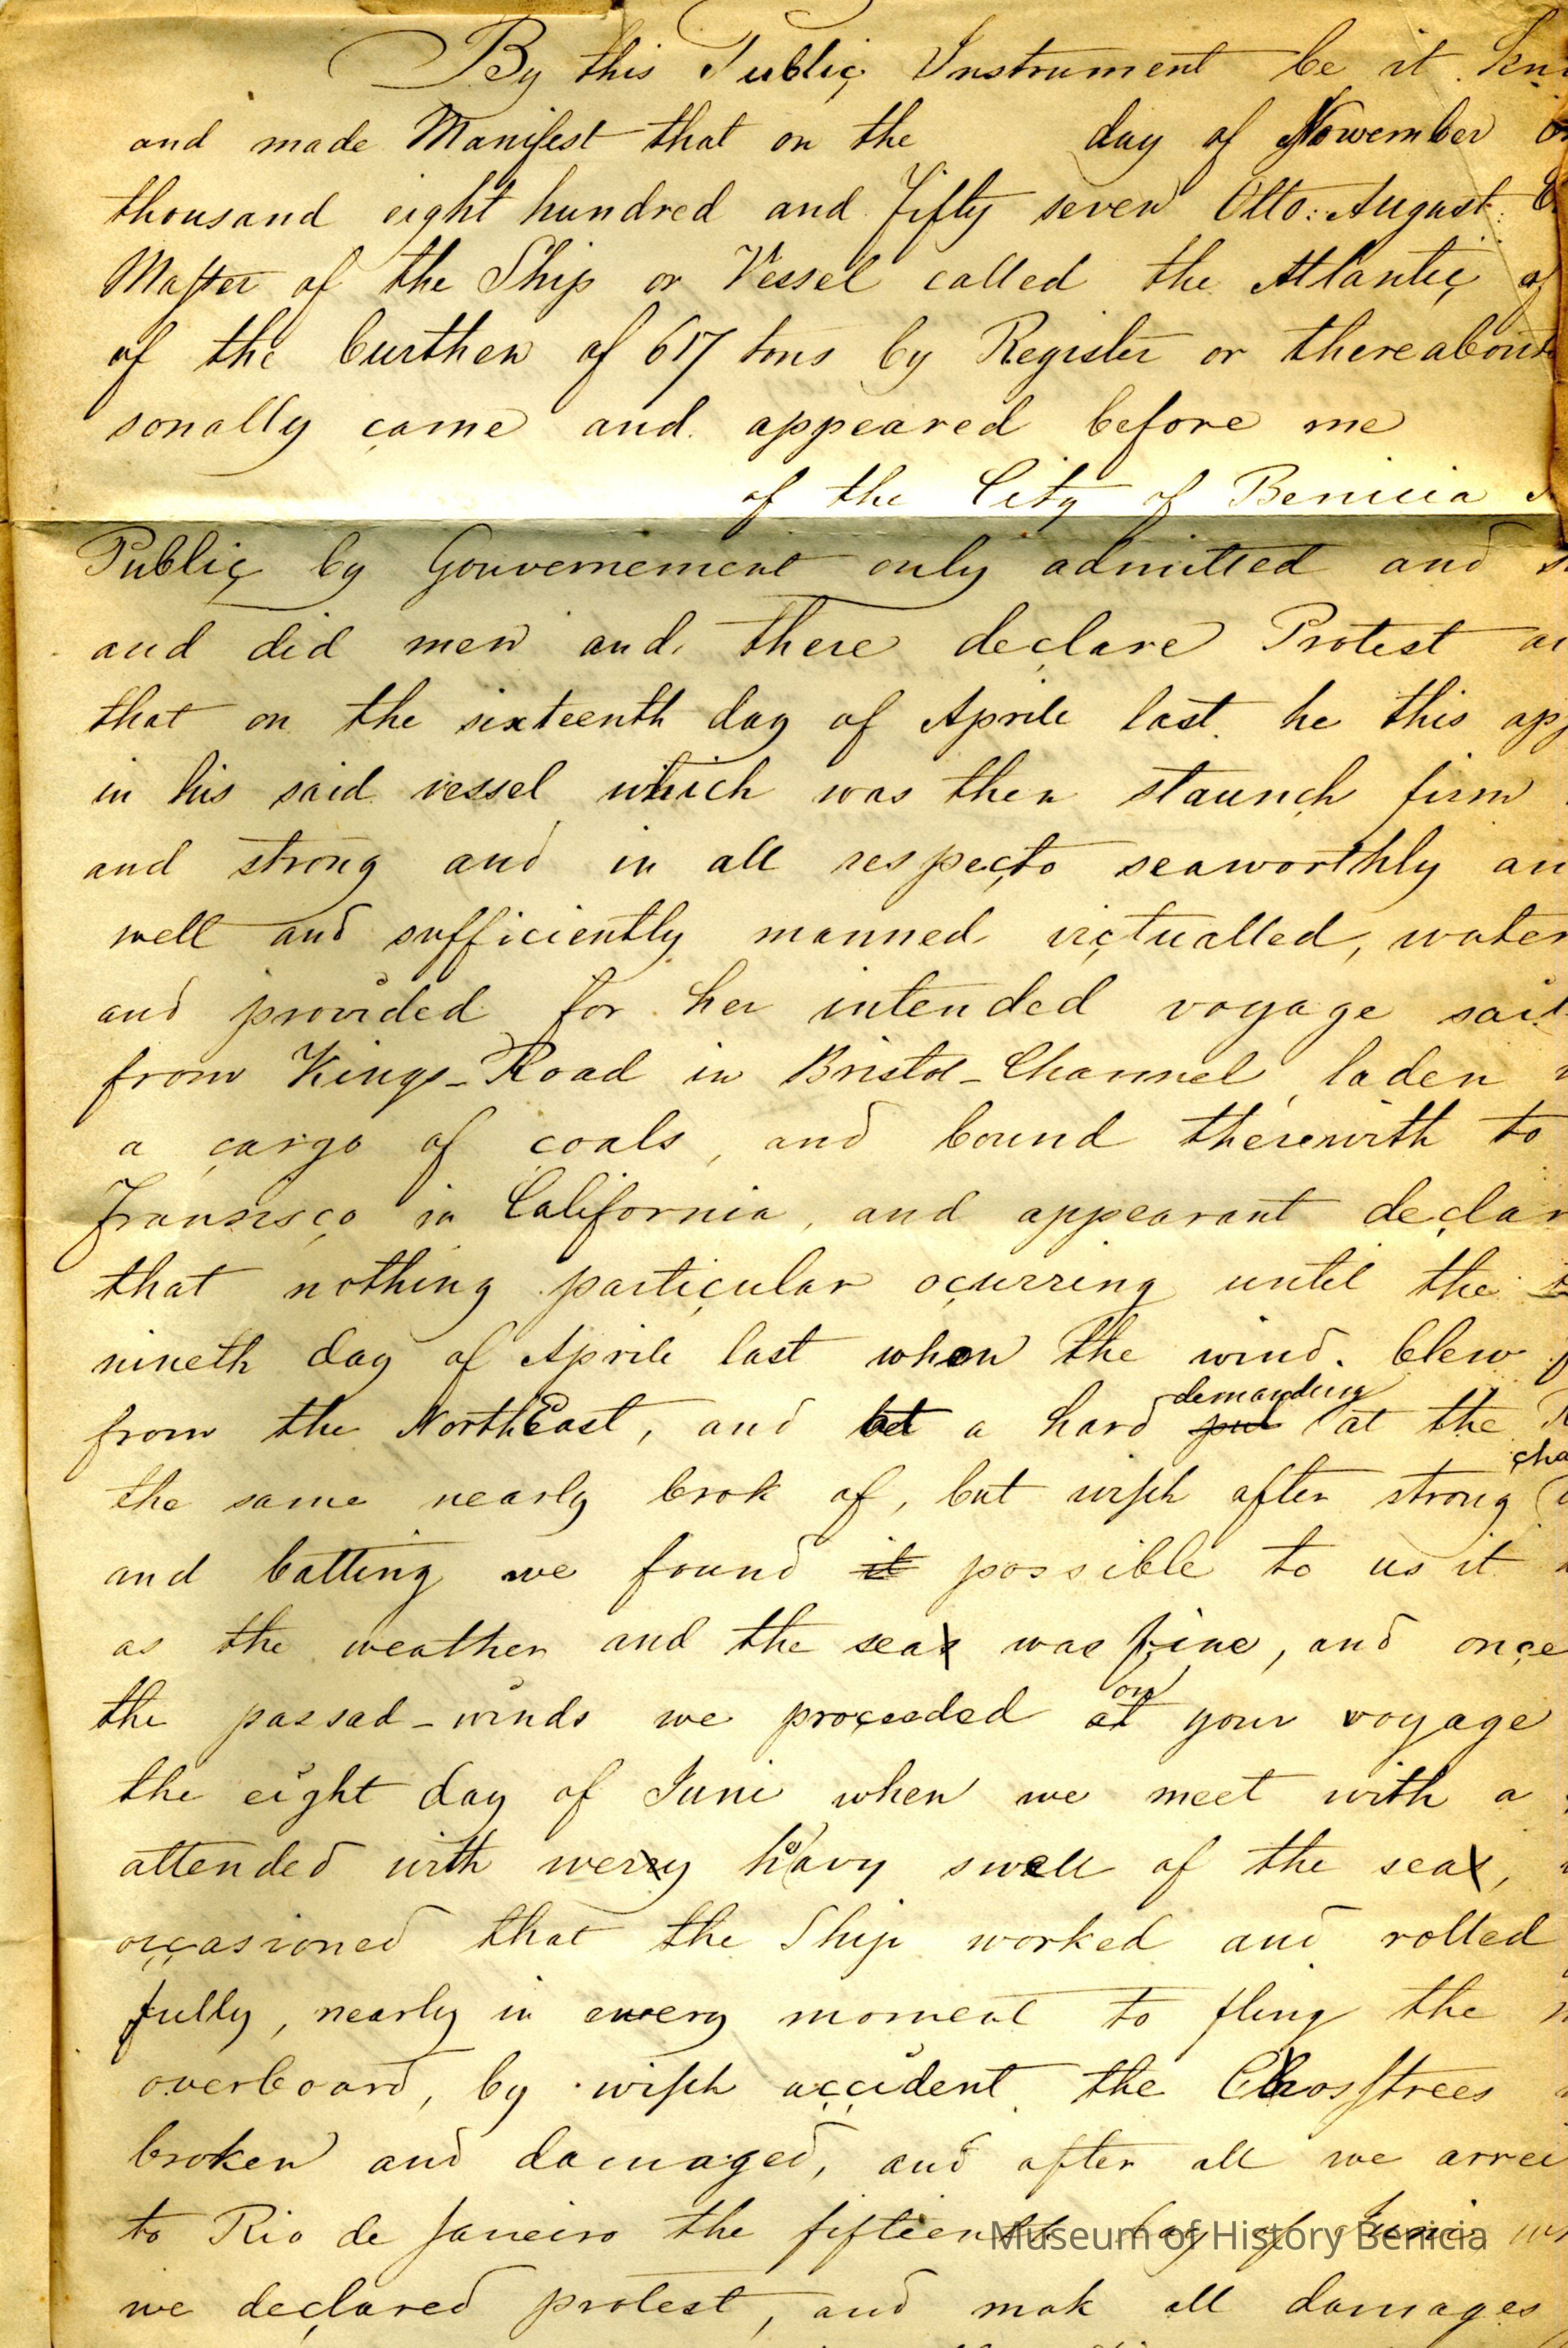 By this Public Instrument be it
and made Manifest that on the day of Nowember
thousand eight hundred and Fifty seven Otto: August:
Master of the Ship or Vessel called the Atlantic of
of the burthen of 617 tons by Register or thereabout
sonally came and appeared before me
of the City of Benicia
Public by Gouvernement only admitted and
and did men and there declare Protest
that on the sixteenth day of Aprile last he this
in his said vessel which was then staunch firm
and strong and in all respects seaworthly
well and sufficiently manned victualled, water
and provided for her intended voyage
from Kings-Road in Bristol-Channel, laden
a cargo of coals, and bound therewith to
Fransisco in California, and appearant declar
that nothing particular ocurring until the
nineth day of Aprile last when the wind. blew
from the NorthEast, and bet a hard demanding at the
the same nearly brok of, but wish after strong
and batting we found it possible to us it
as the weather and the sea was fine, and once
the passad-winds we proceeded on your voyage
the eight day of Juni when we meet with a
attended with wery heavy swell of the sea,
occasioned that the Ship worked and rolled
fully, nearly in ewery moment to fling the
overboard, by wish accident the Crosstrees
broken and damaged, and after all we
to Rio de Janeiro the fifteenth day of Juni
we declared protest, and mak all damages
Museum of History Benicia